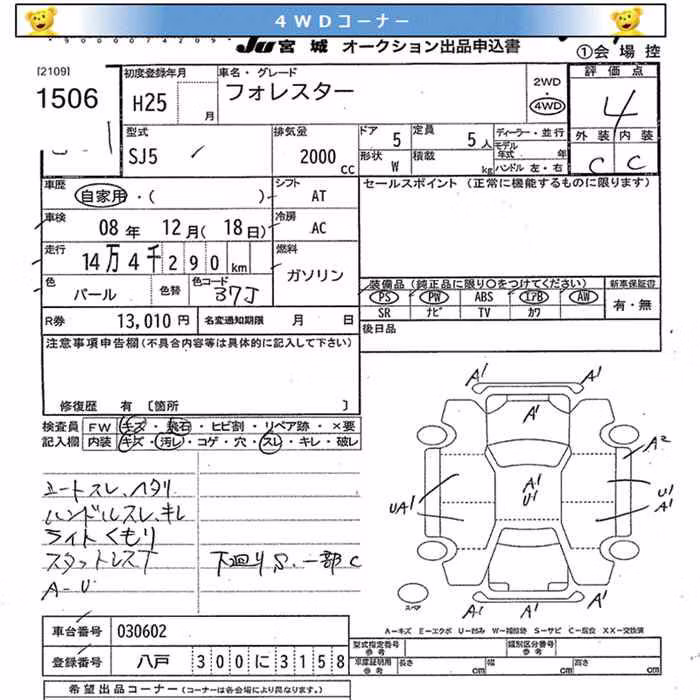 4WDコーナー
JU 宮城 オークション出品申込書
①会場控
[2109]
1506
初度登録年月
H25
月
車名・グレード
フォレスター
2WD
・
4WD
評価点
4
外装 内装
C C
型式
SJ5
排気量
2000 CC
ドア 5
定員 5人
形状 W
積載 kg
ディーラー・並行
モデル年式 年
ハンドル 左・右
車歴
自家用・( )
シフト
AT
セールスポイント (正常に機能するものに限ります)
車検
08年 12月(18日)
冷房
AC
走行
14万4千290km
燃料
ガソリン
色
パール
色替
色コード
37J
装備品 (純正品に限り○をつけてください)
新車保証書
PS PW ABS エアB AW
SR ナビ TV カワ
有・無
R券 13,010円
名変通知期限 月 日
後日品
注意事項申告欄(不具合内容等は具体的に記入して下さい)
修復歴 有 〔箇所 〕
検査員記入欄
FW キズ・飛石・ヒビ割・リペア跡・×要
内装 キズ・汚レ・コゲ・穴・スレ・キレ・破レ
シートスレ、ヘタリ
ハンドルスレ、キレ
ライトくもり
スタットレスT
A-U
下回りS、一部C
A1 A1
A1
A2
UA1
A1
U1
U1
A1
A1 A1
スペア
A―キズ E―エクボ U―凹み W―補修跡 S―サビ C―腐食 XX―交換済
車台番号 030602
登録番号 八戸 300に3158
型式指定番号 参考
類別区分番号 参考
車庫証明用 参考
長さ cm
幅 cm
高さ cm
希望出品コーナー (コーナーは各会場により異なります。)